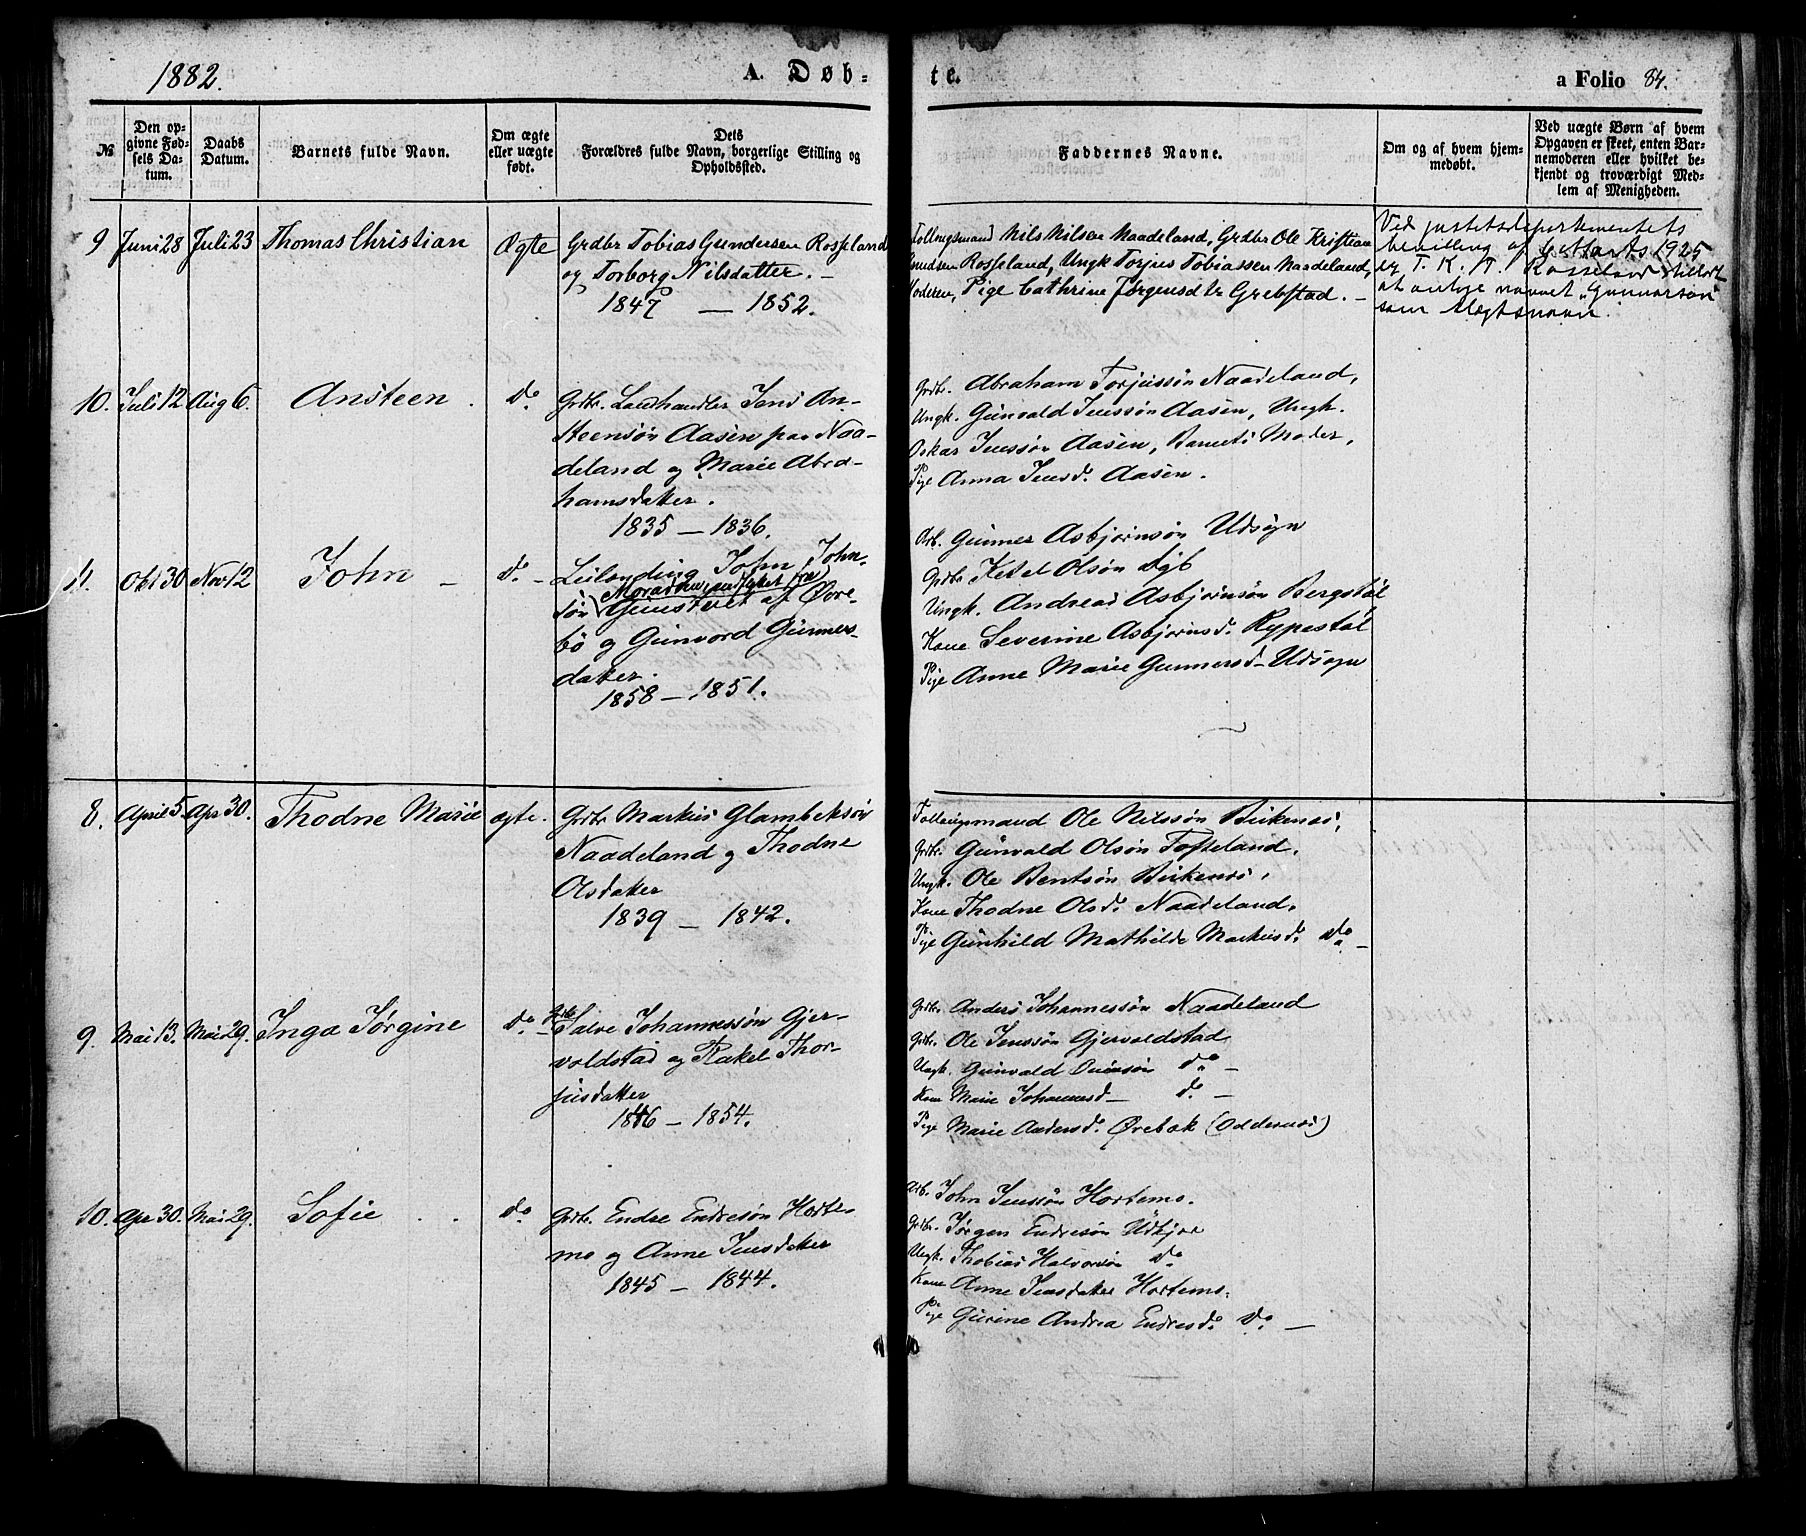 1882.
A. Døb-
te.
a Folio 84.
№
Den op-
givne Fød-
sels Da-
tum.
Daabs
Datum.
Barnets fulde Navn.
Om ægte
eller uægte
født.
Dets
Forældres fulde Navn, borgerlige Stilling og
Opholdssted.
Faddernes Navne.
Om og af hvem hjem-
medøbt.
Ved uægte Børn af hvem
Opgaven er skeet, enten Bar-
nemoderen eller hvilket be-
kjendt og troværdigt Med-
lem af Menigheden.
9 Juni 28 Juli 23 Thomas Christian Ægte
Grdbr Tobias Gundersen Rosseland
og Torborg Nilsdatter. –
1847 — 1852.
Nils Nilsen Naadeland, Grdbr Ole Kristian
Knudsen Rosseland, Ungk Torjus Tobiassen Naadeland,
Moderen, Pige Cathrine Jørgensdtr Grebstad. –
Ved justitsdepartementets
bevilling af 6 Marts 1925
er T. K. T. Rosseland tilladt
at antage navnet „Gunvarson"
som slægtsnavn.
10. Juli 12 Aug 6. Ansteen. do
Grdbr. Landhandler Jens An-
steensøn Aasen paa Naa-
deland og Marie Abra-
hamsdatter.
1835 — 1836.
Grdbr. Abraham Torjussøn Naadeland,
Ungk. Gunvald Jenssøn Aasen, Ungk.
Oskar Jenssøn Aasen, Barnets Moder,
Pige Anna Jensd. Aasen.
11. Okt 30 Nov 12 John – do –
Leilending John John-
søn af Øvre-
bø og Gunvord Gunners-
datter.
1858 — 1851.
Arb. Gunner Asbjørnsøn Udsøgn
Grdbr Ketel Olsøn
Ungk. Andreas Asbjørnsøn Bergstøl
Kone Severine Asbjørnsd. Rypestøl
Pige Anne Marie Gunnersd– Udsøgn
8. April 5. Apr 30. Thodne Marie ægte.
Grdbr Markus Glambeksøn
Naadeland og Thodne
Olsdatter
1839 — 1842.
Ole Nilssøn Birkenes,
Grdbr. Gunvald Olsøn Tofteland,
Ungk. Ole Bentsøn Birkenes,
Kone Thodne Olsd. Naadeland,
og
Pige Gunhild Mathilde Markusd. do –
9. Mai 13. Mai 29. Inga Jørgine do –
Grdbr
Salve Johannessøn Gjer-
voldstad og Rakel Thor-
jusdatter
1846 — 1854.
Grdbr. Anders Johannessøn Naadeland
Grdbr. Ole Jenssøn Gjervoldstad
Ungk. Gunvald do –
Kone Marie Johannesd– do –
Pige Marie Andersd. Øvebak (Oddernes)
10. Apr 30. Mai 29. Sofie . . do
Grdbr. Endre Endresøn Horte-
mo og Anne Jensdatter
1845 — 1844.
Arb. John Jenssøn Hortemo.
Grdbr. Jørgen Endresøn Udkjær
Ungk. Thobias Halvorsøn do
Kone Anne Jensdatter Hortemo.
Pige Gurine Andrea Endresd. do –